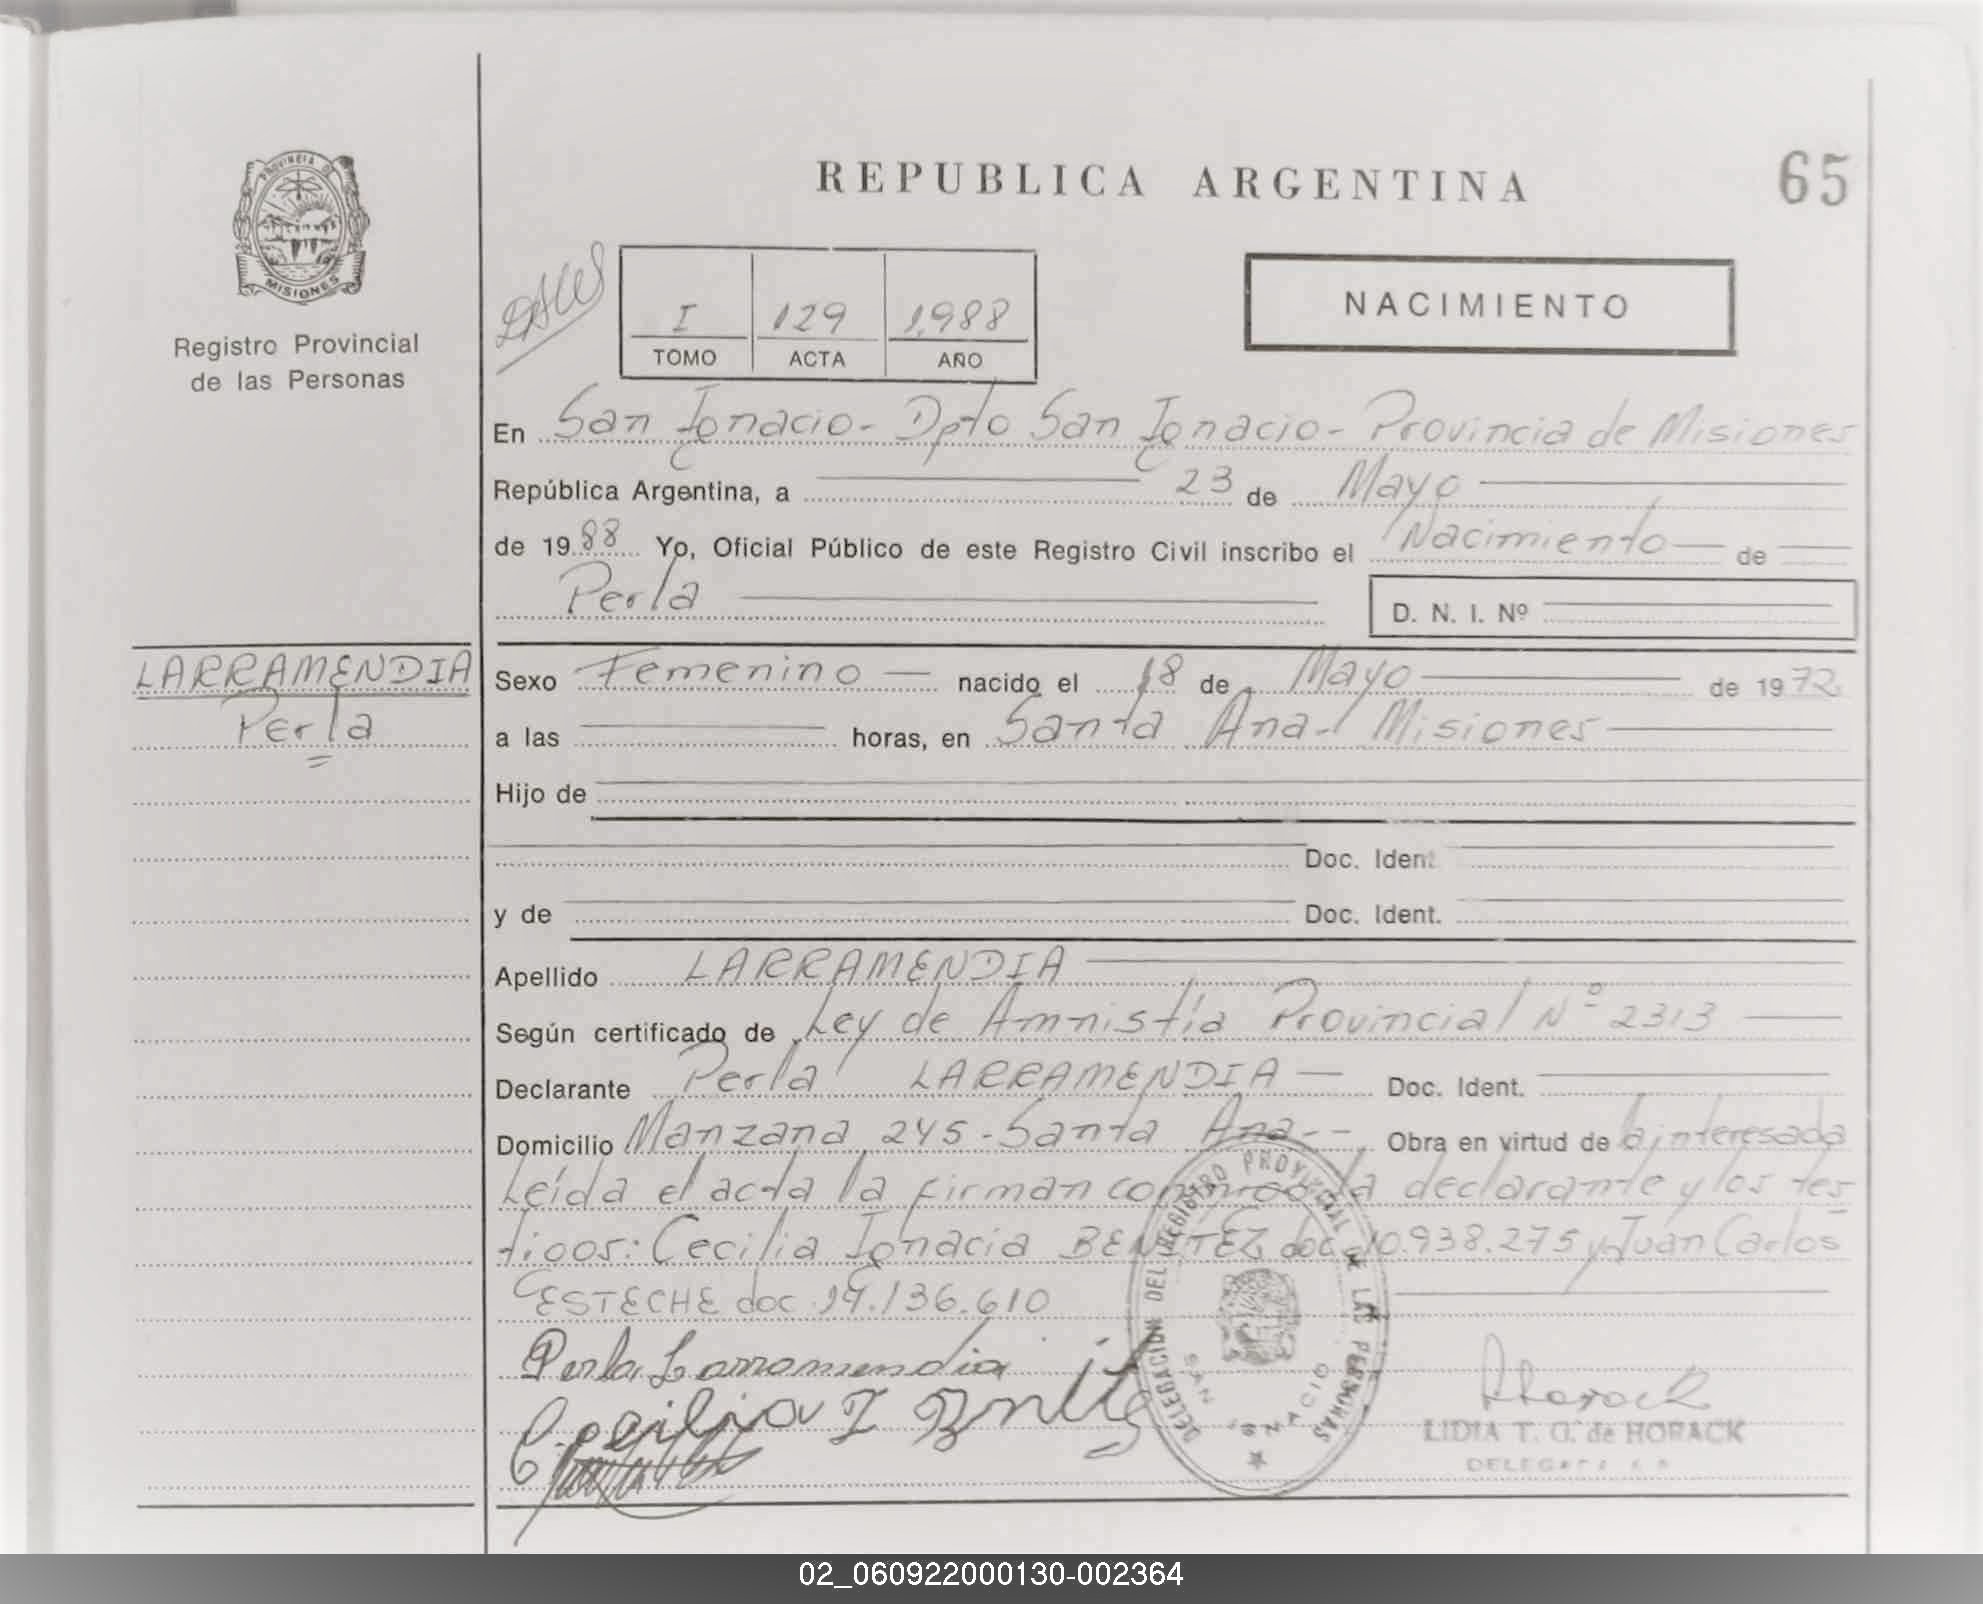 REPUBLICA ARGENTINA
65
PROVINCIA DE
MISIONES
Registro Provincial
de las Personas
I 129 1988
TOMO ACTA AÑO
NACIMIENTO
En San Ignacio - Dpto San Ignacio - Provincia de Misiones
República Argentina, a 23 de Mayo
de 1988 Yo, Oficial Público de este Registro Civil inscribo el Nacimiento de
Perla D. N. I. Nº
LARRAMENDIA
Perla
Sexo Femenino nacido el 18 de Mayo de 1972
a las horas, en Santa Ana - Misiones
Hijo de
Doc. Ident.
y de Doc. Ident.
Apellido LARRAMENDIA
Según certificado de Ley de Amnistía Provincial Nº 2313
Declarante Perla LARRAMENDIA Doc. Ident.
Domicilio Manzana 245 - Santa Ana -- Obra en virtud de la interesada
Leída el acta la firman conmigo la declarante y los tes
tigos: Cecilia Ignacia BENITEZ doc 10.938.275 y Juan Carlos
ESTECHE doc 19.136.610
Perla Larramendia
Cecilia I
DELEGACION DEL REGISTRO PROVINCIAL DE LAS PERSONAS
SAN IGNACIO
Horack
LIDIA T. G. de HORACK
DELEGADA
02_060922000130-002364